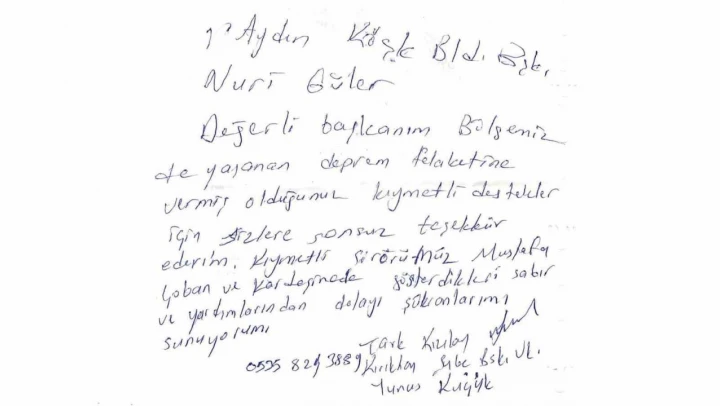 1° Aydın Köşk Bld. Bşk.
Nuri Güler
Değerli başkanım Bölgeniz
de yaşanan deprem felaketine
vermiş olduğunuz kıymetli destekler
için sizlere sonsuz teşekkür
ederim. Kıymetli şöförümüz Mustafa
Çoban ve Kardeşinede gösterdikleri sabır
ve yardımlarından dolayı şükranlarımı
sunuyorum
Türk Kızılay
0535 829 3889 Kırıkhan Şube Bşk. Vk.
Yunus Küçük